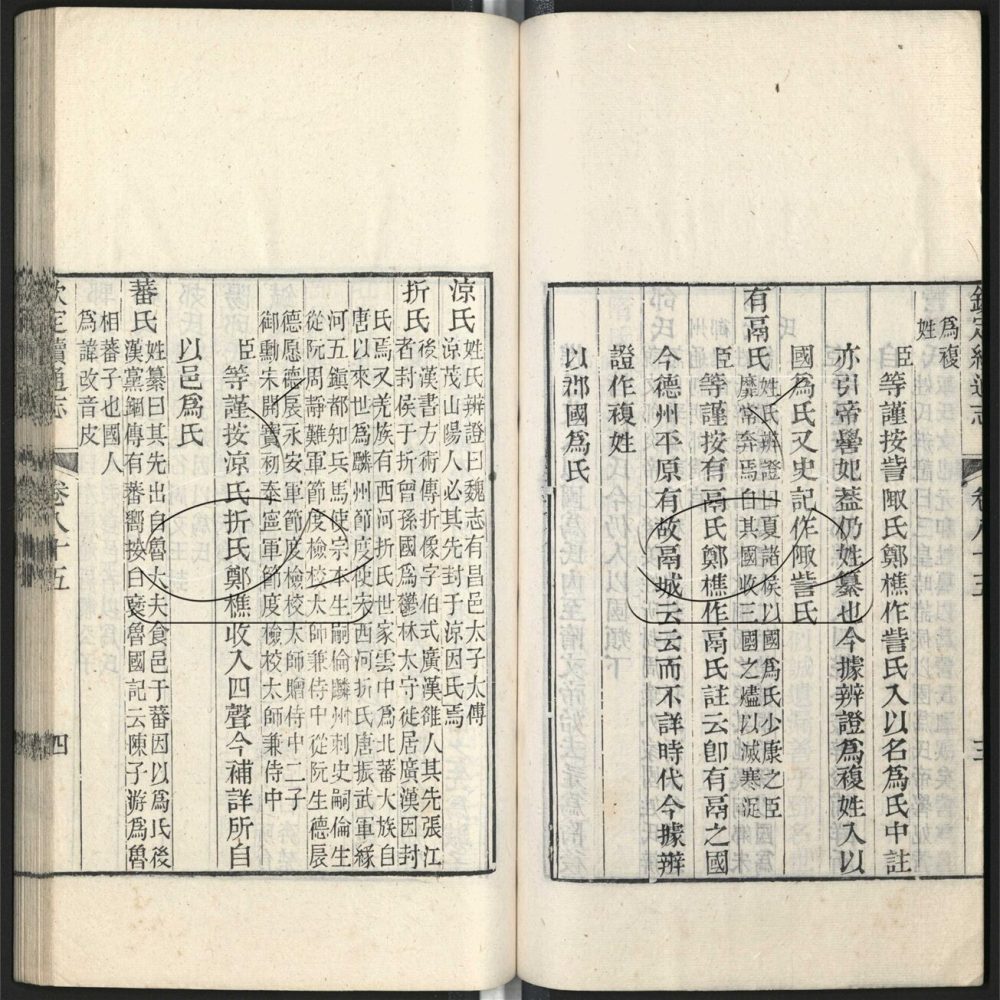 欽定續通志 卷八十五 三
爲複
姓
臣等謹按訾陬氏鄭樵作訾氏入以名爲氏中註
亦引帝嚳妃蓋仍姓纂也今據辨證爲複姓入以
國爲氏又史記作陬訾氏
有鬲氏
姓氏辨證曰夏諸侯以國爲氏少康之臣
靡奔焉自其國收三國之燼以滅寒浞
臣等謹按有鬲氏鄭樵作鬲氏註云卽有鬲之國
今德州平原有故鬲城云云而不詳時代今據辨
證作複姓
以郡國爲氏
涼氏
姓氏辨證曰魏志有昌邑太子太傅
涼茂山陽人必其先封于涼因氏焉
折氏
後漢書方術傳折像字伯式廣漢雒人其先張江
者封侯于折曾孫國爲鬱林太守徙居廣漢因封
氏焉又羌族有西河折氏世家雲中爲北蕃大族自
唐以來世爲麟州節度使宋西河折氏唐振武軍緣
河五鎮都知兵馬使宗本生嗣倫麟州刺史嗣倫生
從阮周靜難軍節度檢校太師兼侍中從阮生德扆
德愿德扆永安軍節度檢校太師贈侍中二子
御勳宋開寶初泰寧軍節度檢校太師兼侍中
臣等謹按涼氏折氏鄭樵收入四聲今補詳所自
以邑爲氏
蕃氏
姓纂曰其先出自魯大夫食邑于蕃因以爲氏後
漢黨錮傳有蕃嚮按白裒魯國記云陳子游爲魯
相蕃子也國人
爲諱改音皮
欽定續通志 卷八十五 四